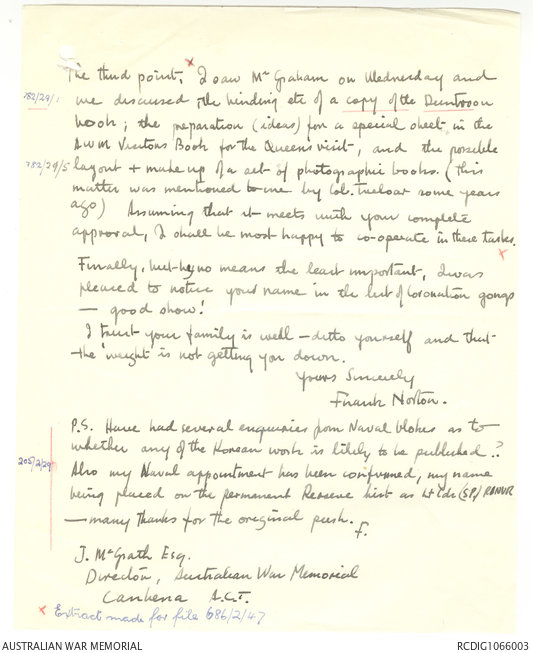 The third point, x I saw Mr Graham on Wednesday and
782/29/1
we discussed the binding etc of a copy of the Duntroon
book; the preparation (ideas) for a special sheet, in the
AWM Visitors Book for the Queen's visit, and the possible
782/29/5
layout + make up of a set of photographic books. (This
matter was mentioned to me by Col. Treloar some years
ago) Assuming that it meets with your complete
approval, I shall be most happy to co-operate in these tasks.
x
Finally, but by no means the least important, I was
pleased to notice your name in the list of Coronation gongs
— good show!
I trust your family is well – ditto yourself and that
the 'weight' is not getting you down.
Yours Sincerely
Frank Norton.
P.S. Have had several enquiries from Naval blokes as to
whether any of the Korean work is likely to be published..?
205/2/29
Also my Naval appointment has been confirmed, my name
being placed on the permanent Reserve list as Lt Cdr (SP) RANVR
— many thanks for the original push.
F.
J. McGrath Esq.
Director, Australian War Memorial
Canberra A.C.T.
x Extract made for file 686/2/47
AUSTRALIAN WAR MEMORIAL
RCDIG1066003